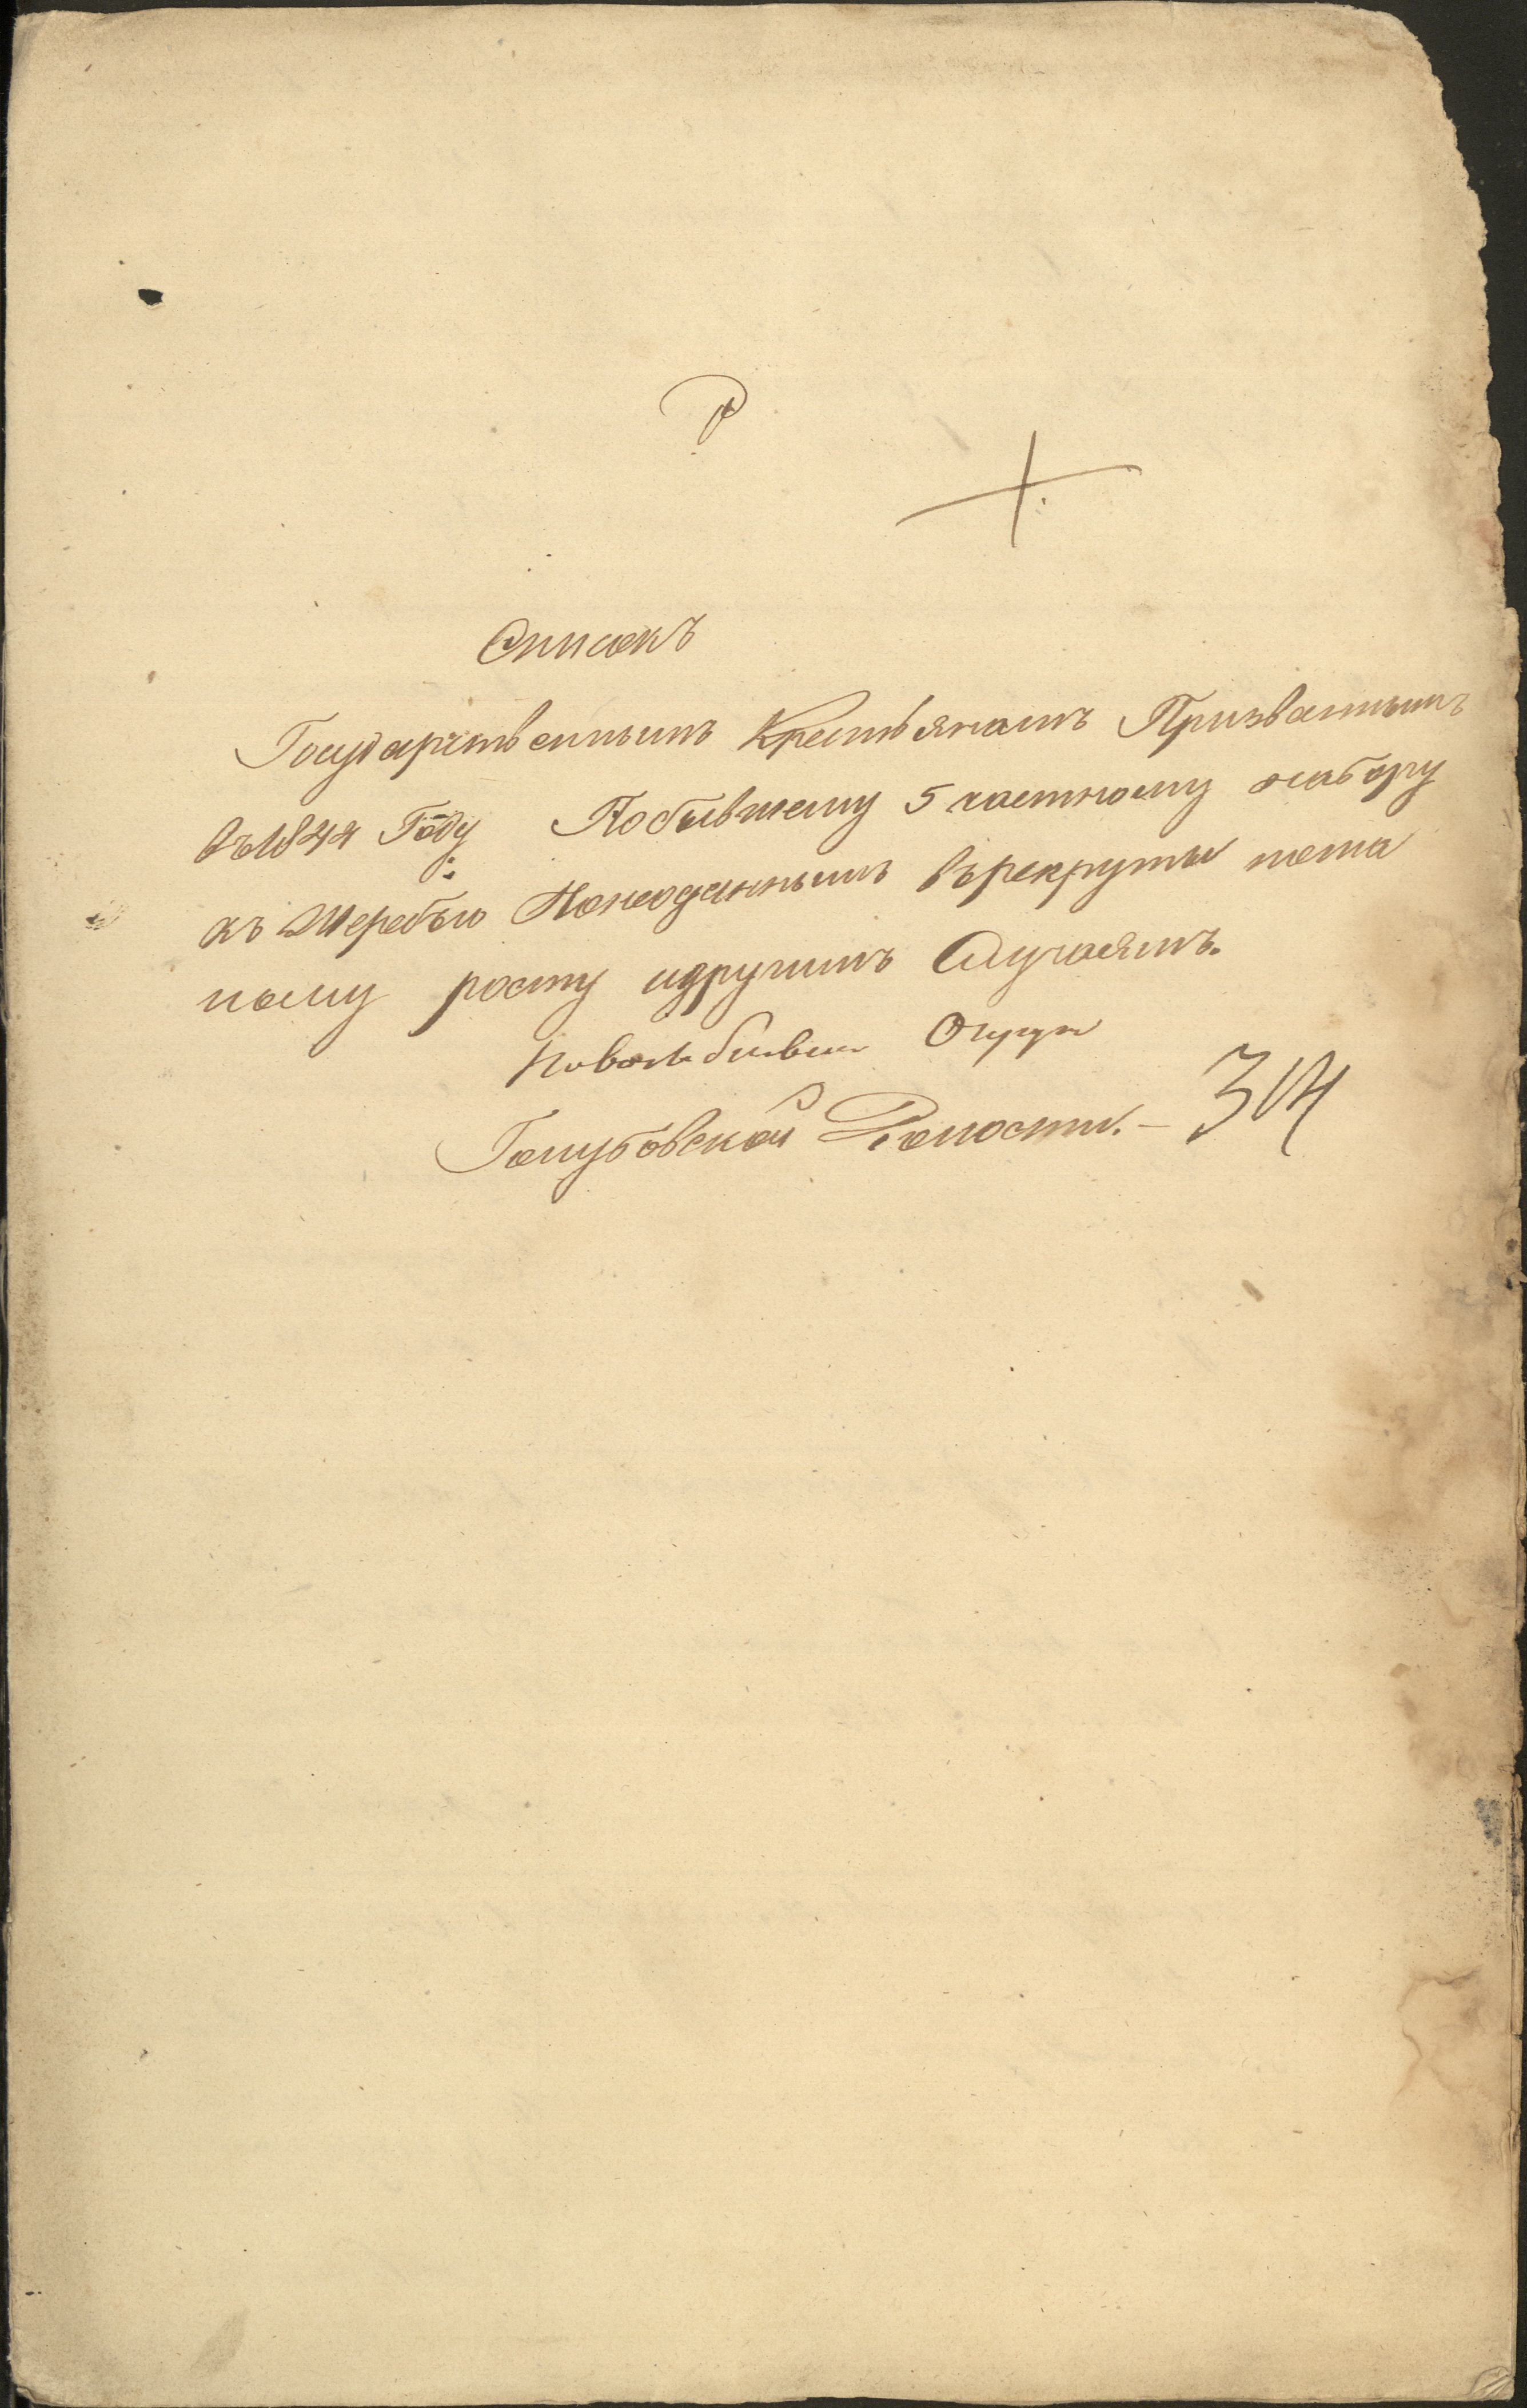 Списокъ
Государственнымъ Крестьянамъ Призваннымъ
въ 1844 Году Побывшему 5 частному набору
къ Жеребью Нонеоданнымъ въ рекруты пома
лому росту идругимъ Случаямъ.
Округа
Голубовской Волости. —